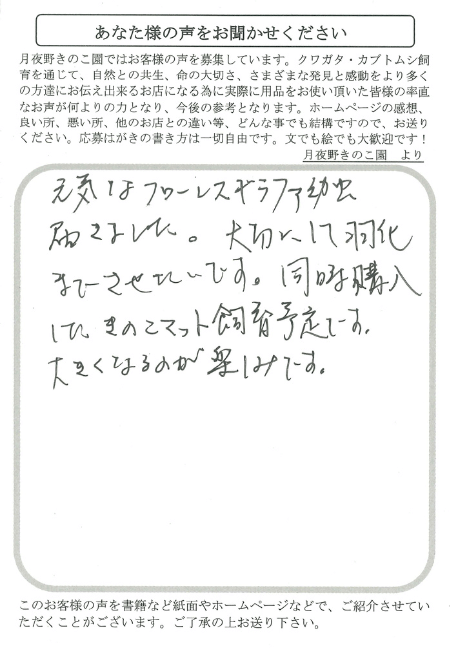 あなた様の声をお聞かせください
月夜野きのこ園ではお客様の声を募集しています。クワガタ・カブトムシ飼
育を通じて、自然との共生、命の大切さ、さまざまな発見と感動をより多く
の方達にお伝え出来るお店になる為に実際に用品をお使い頂いた皆様の率直
なお声が何よりの力となり、今後の参考となります。ホームページの感想、
良い所、悪い所、他のお店との違い等、どんな事でも結構ですので、お送り
ください。応募はがきの書き方は一切自由です。文でも絵でも大歓迎です！
月夜野きのこ園　より
元気なフローレスギラファ幼虫
届きました。大切にして羽化
までさせたいです。同時購入
した きのこマット飼育予定です。
大きくなるのが楽しみです。
このお客様の声を書籍など紙面やホームページなどで、ご紹介させてい
ただくことがございます。ご了承の上お送り下さい。